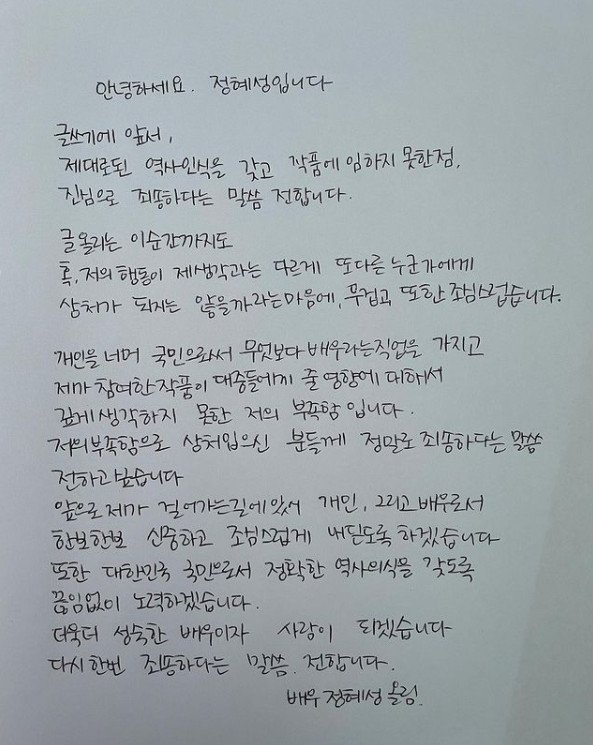 안녕하세요. 정혜성입니다
글쓰기에 앞서,
제대로된 역사인식을 갖고 작품에 임하지 못한점,
진심으로 죄송하다는 말씀 전합니다.
글 올리는 이순간까지도
혹, 저의 행동이 제생각과는 다르게 또다른 누군가에게
상처가 되지는 않을까라는마음에, 무겁고, 또한 조심스럽습니다.
개인을 너머 국민으로써 무엇보다 배우라는직업을 가지고
제가 참여한 작품이 대중들에게 줄 영향에 대해서
깊게 생각하지 못한 저의 부족함 입니다.
저의부족함으로 상처입으신 분들께 정말로 죄송하다는 말씀
전하고 싶습니다
앞으로 제가 걸어가는길에 있어 개인, 그리고 배우로서
한보한보 신중하고 조심스럽게 내딛도록 하겠습니다
또한 대한민국 국민으로서 정확한 역사의식을 갖도록
끊임없이 노력하겠습니다.
더욱더 성숙한 배우이자 사람이 되겠습니다
다시 한번 죄송하다는 말씀. 전합니다.
배우 정혜성 올림.